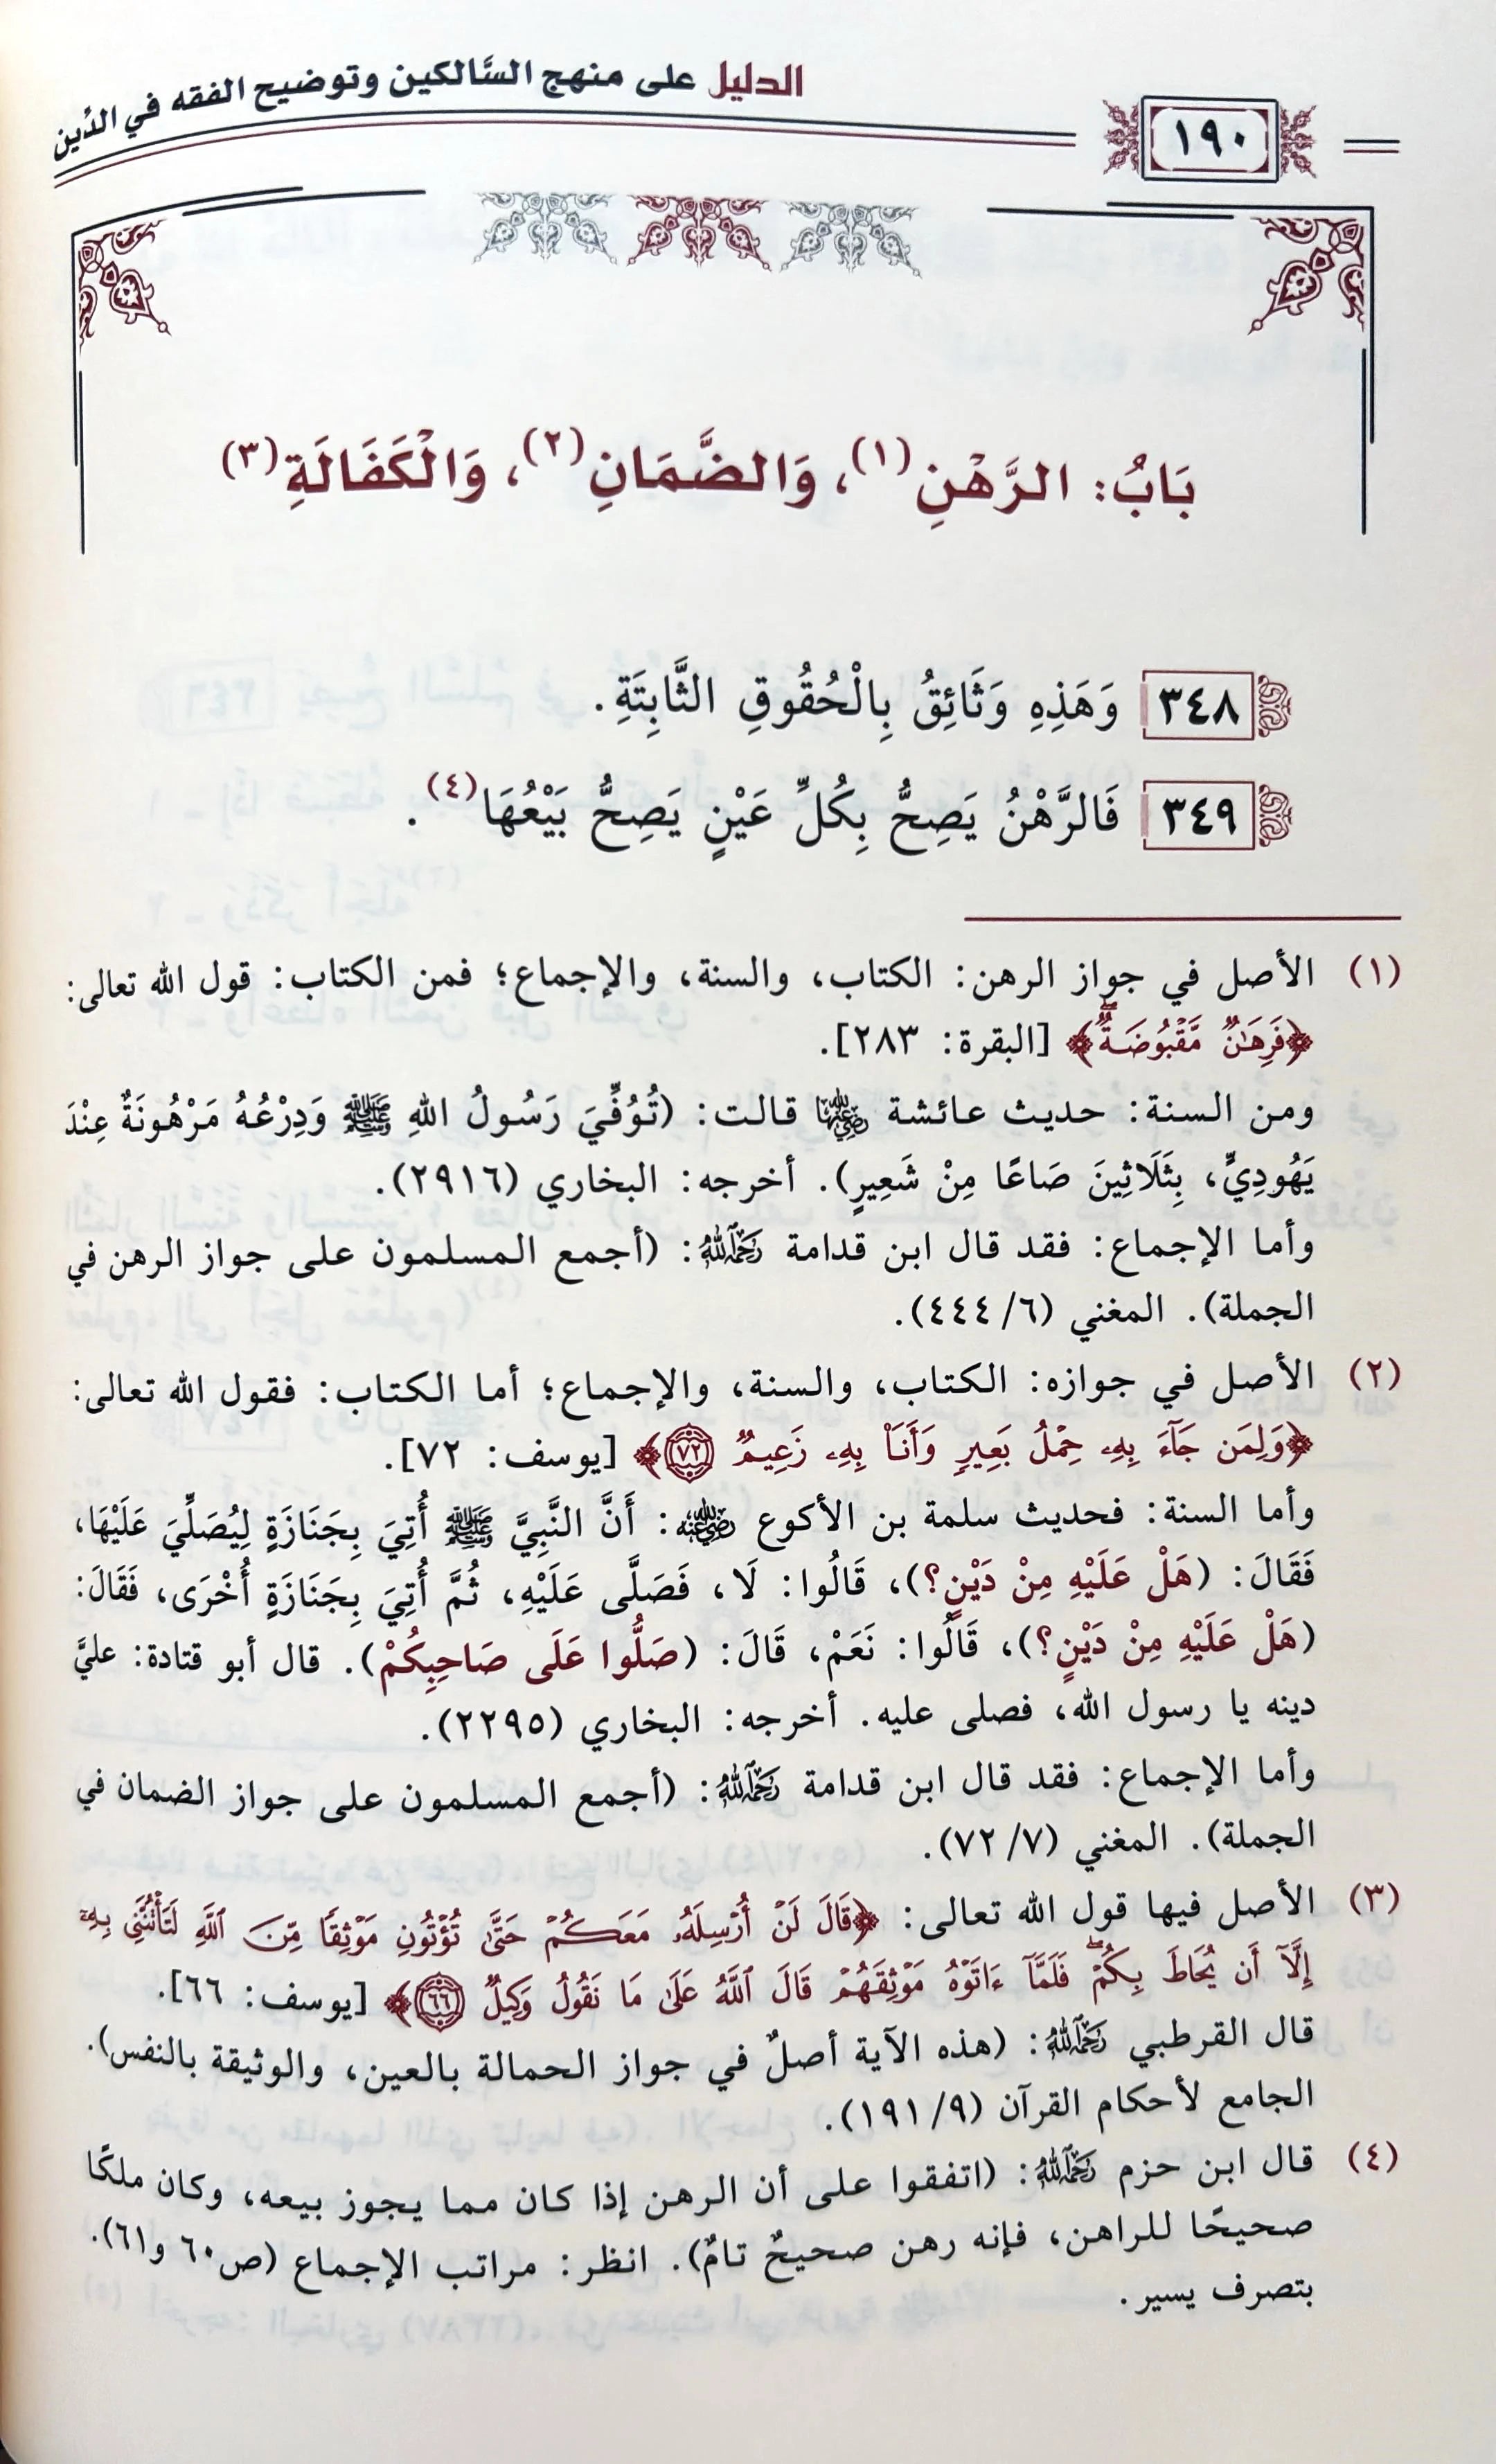 ١٩٠
الدليل على منهج السَّالكين وتوضيح الفقه في الدِّين
بَابُ: الرَّهْنِ(١)، وَالضَّمَانِ(٢)، وَالْكَفَالَةِ(٣)
٣٤٨ وَهَذِهِ وَثَائِقُ بِالْحُقُوقِ الثَّابِتَةِ.
٣٤٩ فَالرَّهْنُ يَصِحُّ بِكُلِّ عَيْنٍ يَصِحُّ بَيْعُهَا(٤).
(١) الأصل في جواز الرهن: الكتاب، والسنة، والإجماع؛ فمن الكتاب: قول الله تعالى:
﴿فَرِهَٰنٞ مَّقۡبُوضَةٞۖ﴾ [البقرة: ٢٨٣].
ومن السنة: حديث عائشة رضي الله عنها قالت: (تُوُفِّيَ رَسُولُ اللهِ ﷺ وَدِرْعُهُ مَرْهُونَةٌ عِنْدَ
يَهُودِيٍّ، بِثَلَاثِينَ صَاعًا مِنْ شَعِيرٍ). أخرجه: البخاري (٢٩١٦).
وأما الإجماع: فقد قال ابن قدامة رحمه الله: (أجمع المسلمون على جواز الرهن في
الجملة). المغني (٦/ ٤٤٤).
(٢) الأصل في جوازه: الكتاب، والسنة، والإجماع؛ أما الكتاب: فقول الله تعالى:
﴿وَلِمَن جَآءَ بِهِۦ حِمۡلُ بَعِيرٖ وَأَنَا۠ بِهِۦ زَعِيمٞ ٧٢﴾ [يوسف: ٧٢].
وأما السنة: فحديث سلمة بن الأكوع رضي الله عنه: أَنَّ النَّبِيَّ ﷺ أُتِيَ بِجَنَازَةٍ لِيُصَلِّيَ عَلَيْهَا،
فَقَالَ: (هَلْ عَلَيْهِ مِنْ دَيْنٍ؟)، قَالُوا: لَا، فَصَلَّى عَلَيْهِ، ثُمَّ أُتِيَ بِجَنَازَةٍ أُخْرَى، فَقَالَ:
(هَلْ عَلَيْهِ مِنْ دَيْنٍ؟)، قَالُوا: نَعَمْ، قَالَ: (صَلُّوا عَلَى صَاحِبِكُمْ). قال أبو قتادة: عليَّ
دينه يا رسول الله، فصلى عليه. أخرجه: البخاري (٢٢٩٥).
وأما الإجماع: فقد قال ابن قدامة رحمه الله: (أجمع المسلمون على جواز الضمان في
الجملة). المغني (٧/ ٧٢).
(٣) الأصل فيها قول الله تعالى: ﴿قَالَ لَنۡ أُرۡسِلَهُۥ مَعَكُمۡ حَتَّىٰ تُؤۡتُونِ مَوۡثِقٗا مِّنَ ٱللَّهِ لَتَأۡتُنَّنِي بِهِۦٓ
إِلَّآ أَن يُحَاطَ بِكُمۡۖ فَلَمَّآ ءَاتَوۡهُ مَوۡثِقَهُمۡ قَالَ ٱللَّهُ عَلَىٰ مَا نَقُولُ وَكِيلٞ ٦٦﴾ [يوسف: ٦٦].
قال القرطبي رحمه الله: (هذه الآية أصلٌ في جواز الحمالة بالعين، والوثيقة بالنفس).
الجامع لأحكام القرآن (٩/ ١٩١).
(٤) قال ابن حزم رحمه الله: (اتفقوا على أن الرهن إذا كان مما يجوز بيعه، وكان ملكًا
صحيحًا للراهن، فإنه رهن صحيحٌ تامٌ). انظر: مراتب الإجماع (ص٦٠ و٦١).
بتصرف يسير.